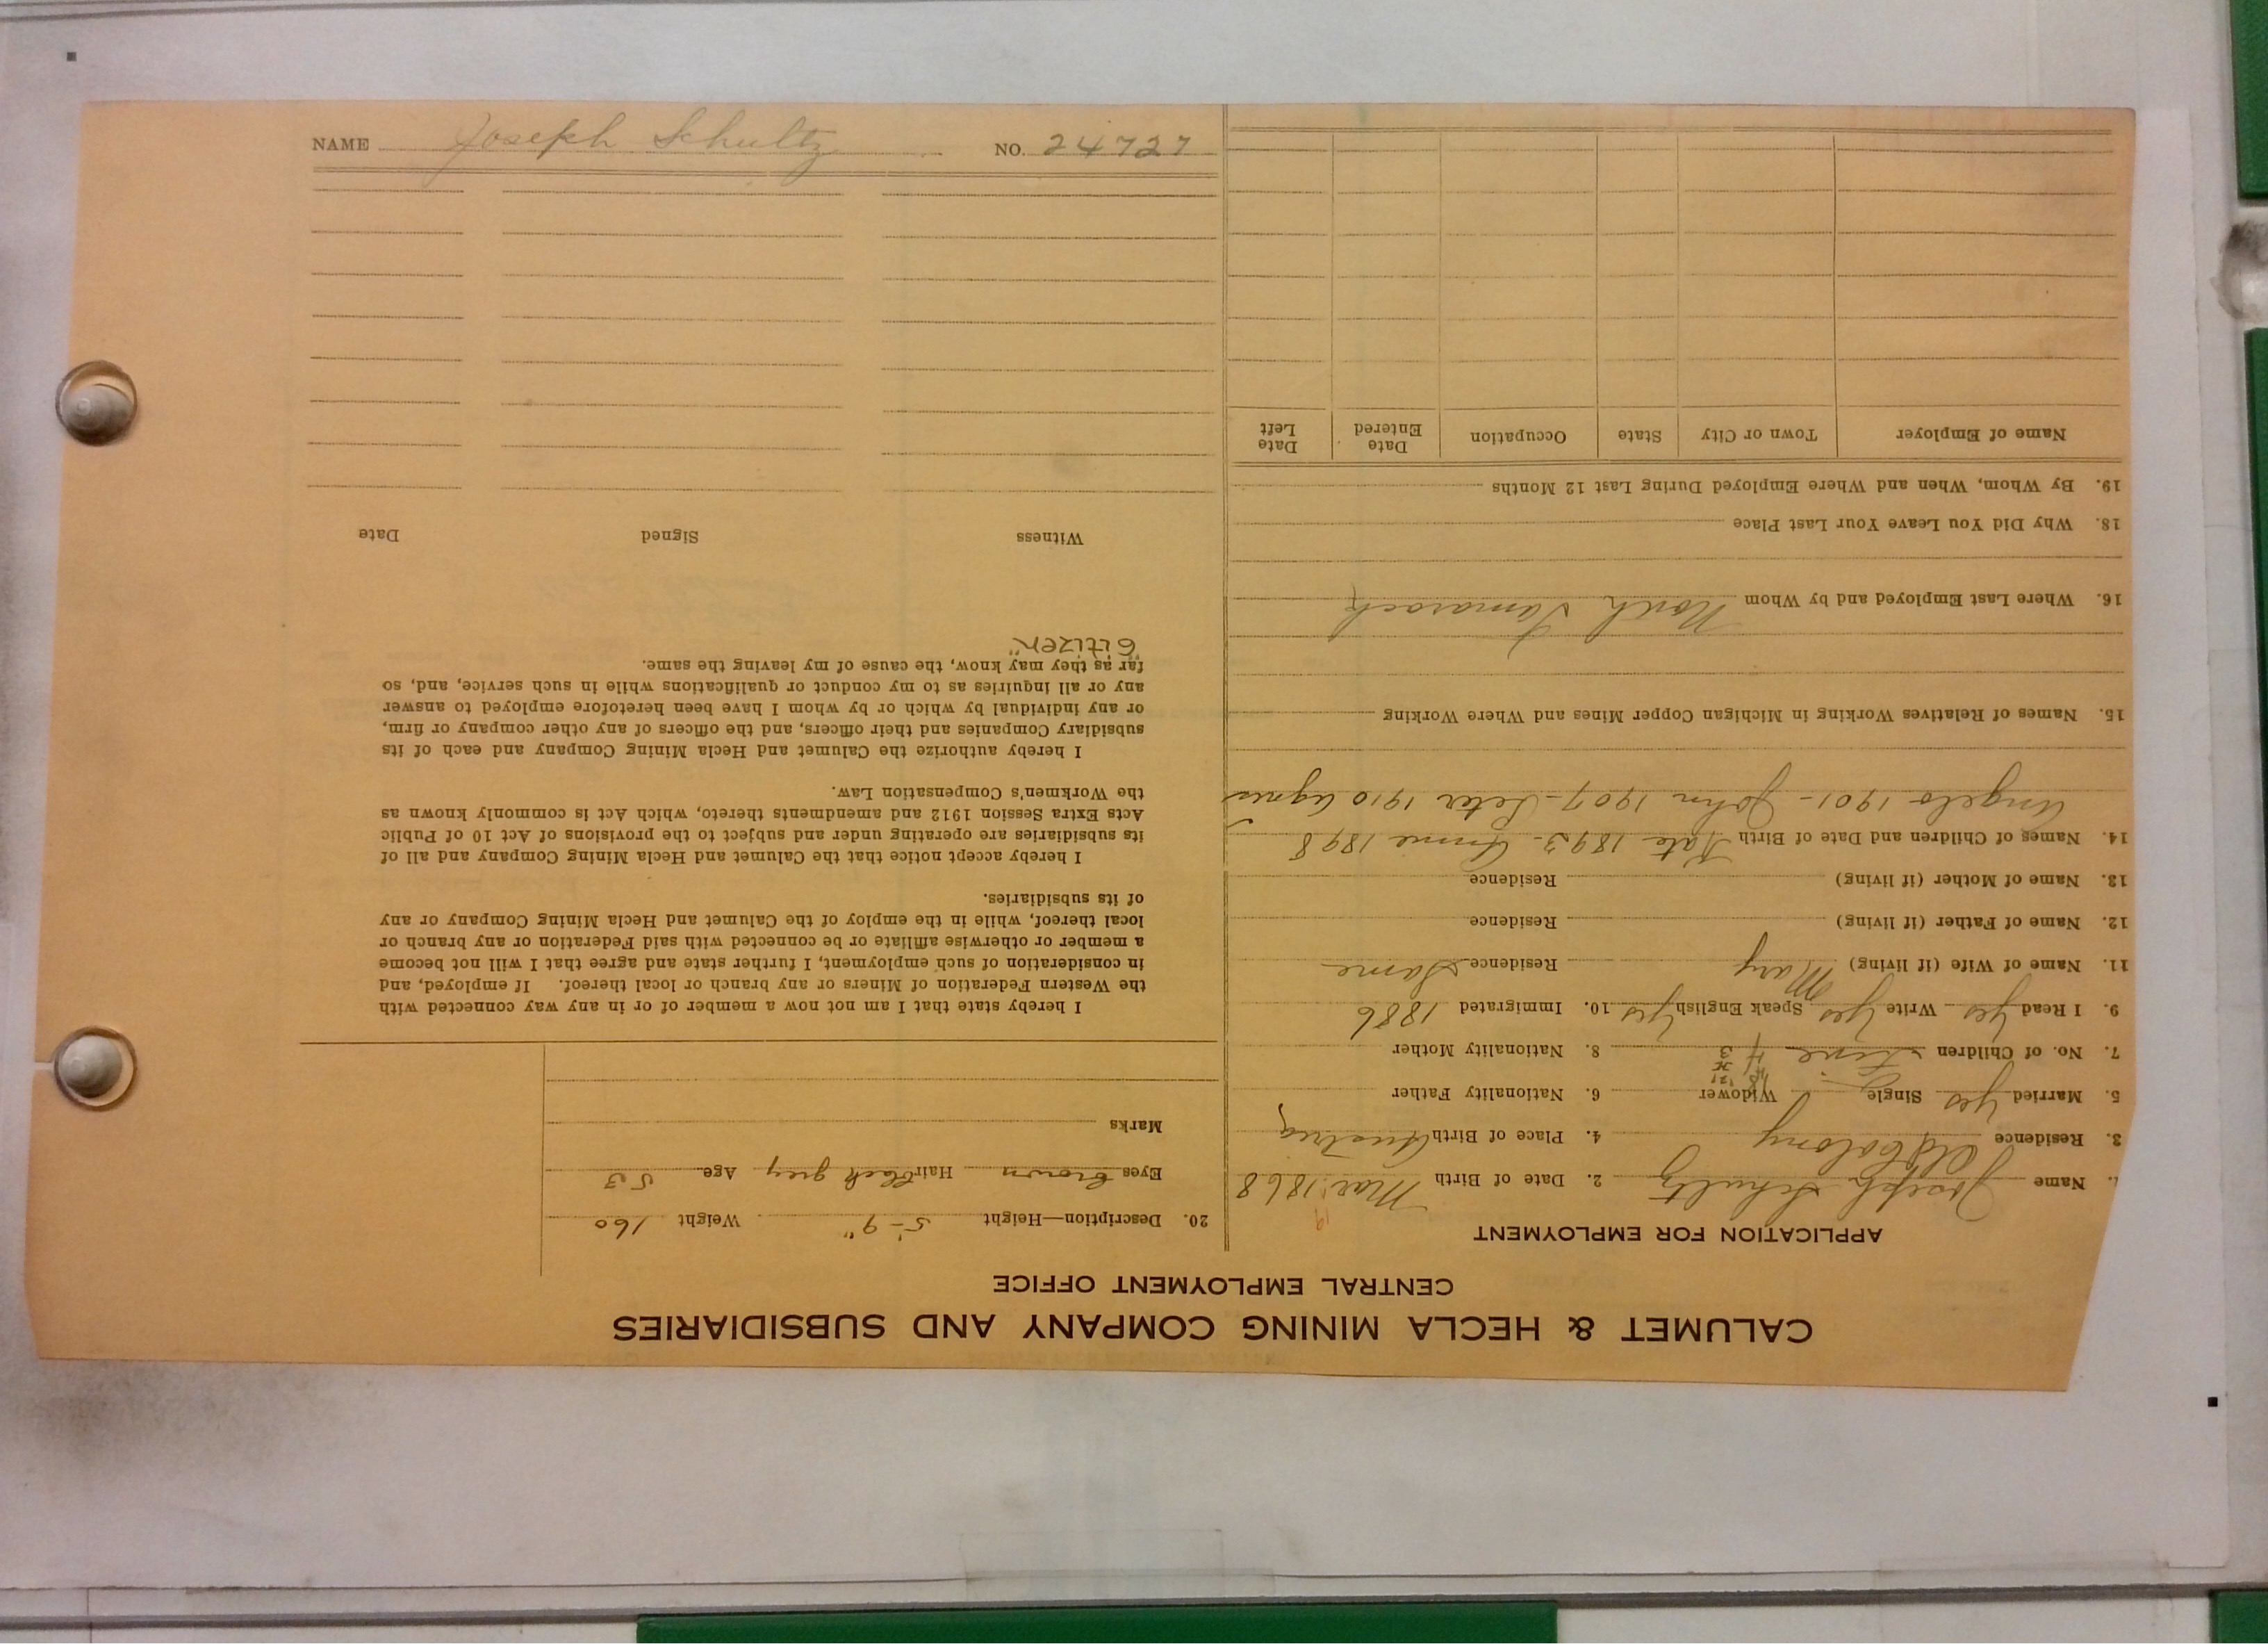 CALUMET & HECLA MINING COMPANY AND SUBSIDIARIES
CENTRAL EMPLOYMENT OFFICE
APPLICATION FOR EMPLOYMENT
1. Name Joseph Schultz 2. Date of Birth Mar. 1868
19
3. Residence Old Colony 4. Place of Birth Austria
5. Married Yes Single Widower 6. Nationality Father
7. No. of Children Five 8. Nationality Mother
9. I Read Yes Write Yes Speak English Yes 10. Immigrated 1886
11. Name of Wife (if living) Mary Residence Same
12. Name of Father (if living) Residence
13. Name of Mother (if living) Residence
14. Names of Children and Date of Birth Kate 1893 - Annie 1898
Angelo 1901 - John 1907 - Peter 1910 Agnes
15. Names of Relatives Working in Michigan Copper Mines and Where Working
16. Where Last Employed and by Whom North Tamarack
18. Why Did You Leave Your Last Place
19. By Whom, When and Where Employed During Last 12 Months
Name of Employer Town or City State Occupation Date Entered Date Left
20. Description—Height 5'-9" Weight 160
Eyes brown Hair black grey Age 53
Marks
I hereby state that I am not now a member of or in any way connected with
the Western Federation of Miners or any branch or local thereof. If employed, and
in consideration of such employment, I further state and agree that I will not become
a member or otherwise affiliate or be connected with said Federation or any branch or
local thereof, while in the employ of the Calumet and Hecla Mining Company or any
of its subsidiaries.
I hereby accept notice that the Calumet and Hecla Mining Company and all of
its subsidiaries are operating under and subject to the provisions of Act 10 of Public
Acts Extra Session 1912 and amendments thereto, which Act is commonly known as
the Workmen's Compensation Law.
I hereby authorize the Calumet and Hecla Mining Company and each of its
subsidiary Companies and their officers, and the officers of any other company or firm,
or any individual by which or by whom I have been heretofore employed to answer
any or all inquiries as to my conduct or qualifications while in such service, and, so
far as they may know, the cause of my leaving the same.
"Citizen"
Witness Signed Date
NAME Joseph Schultz NO. 24727